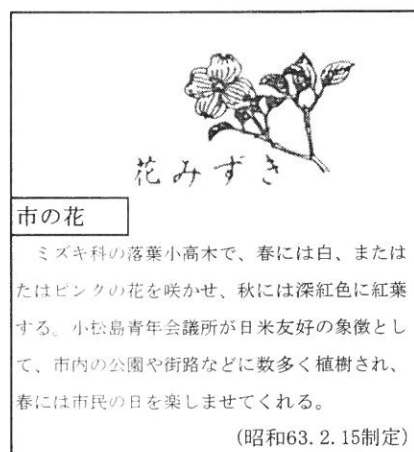 花みずき
市の花
ミズキ科の落葉小高木で、春には白、または
たはピンクの花を咲かせ、秋には深紅色に紅葉
する。小松島青年会議所が日米友好の象徴とし
て、市内の公園や街路などに数多く植樹され、
春には市民の日を楽しませてくれる。
(昭和63.2.15制定)